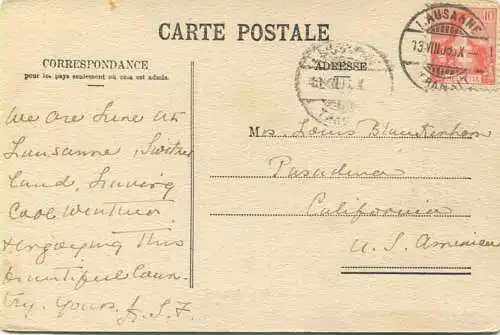 CARTE POSTALE
CORRESPONDANCE
pour les pays seulement où cela est admis.
ADRESSE
LAUSANNE
13.VIII.
10
We are here at
Lausanne, Switzer
land, having
Cool Weather
& enjoying this
beautiful Coun-
try. Yours.
Mrs. Louis Blankenhorn
Pasadena
California
U. S. America